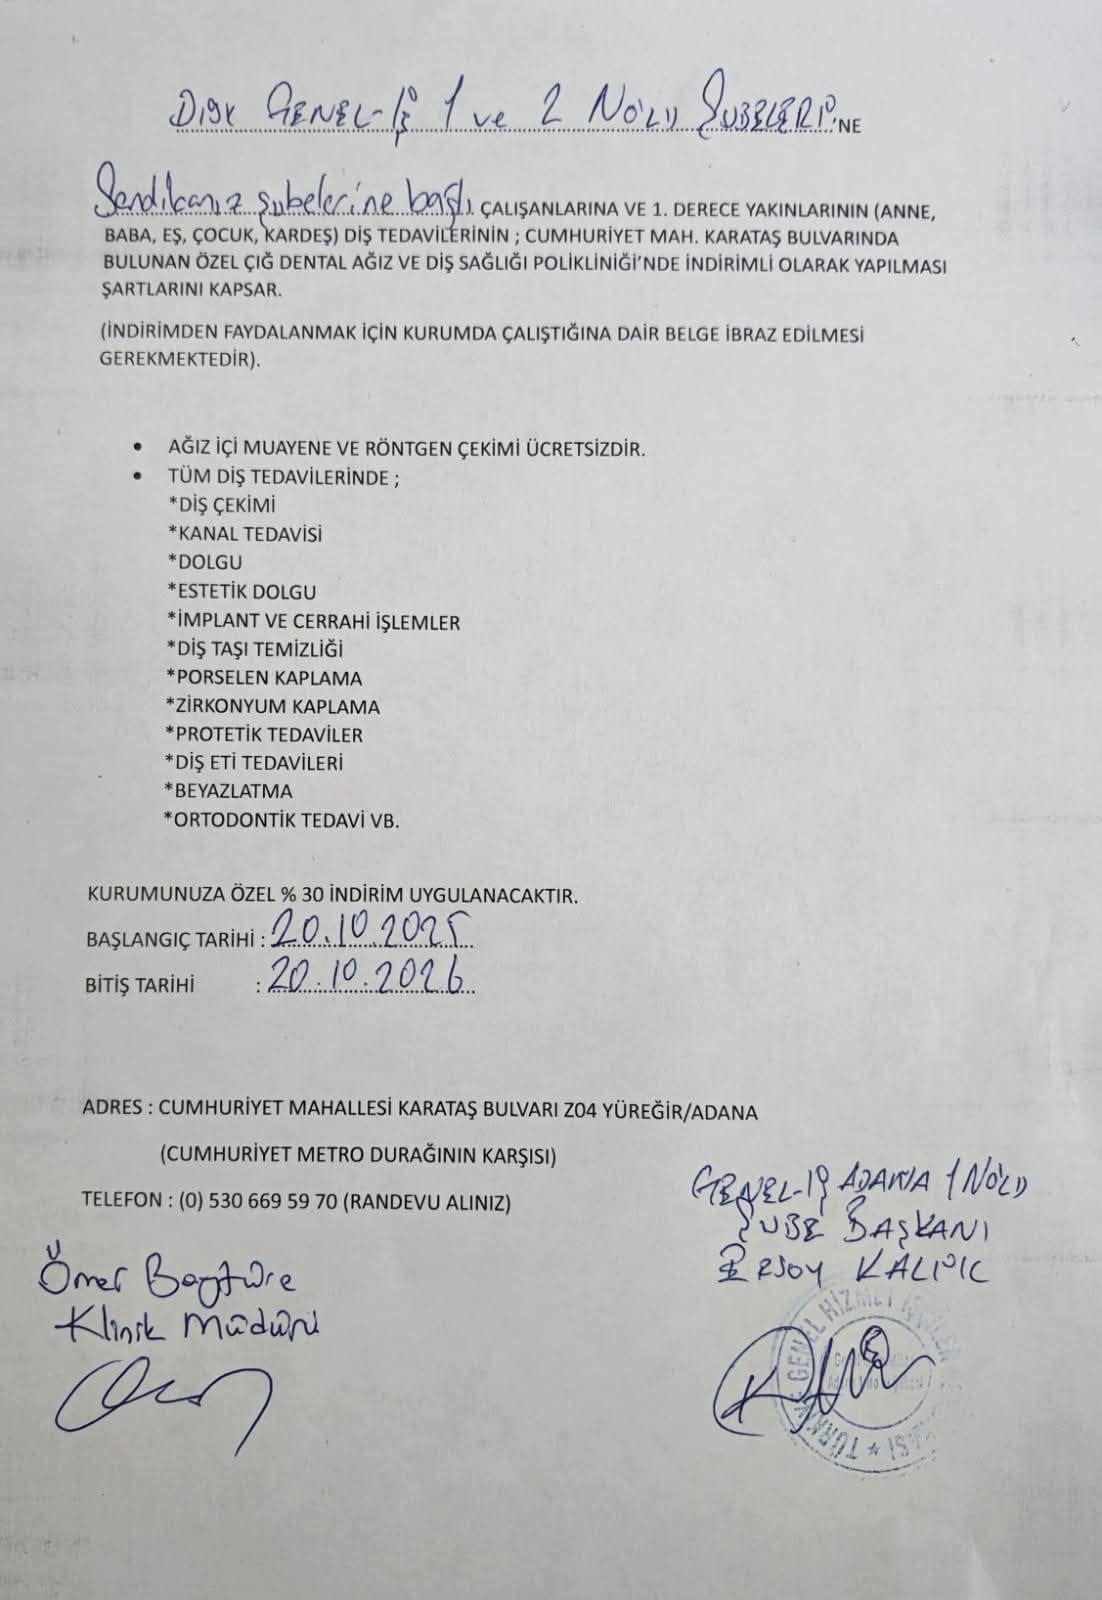 DİSK GENEL-İŞ 1 ve 2 NO'LU ŞUBELERİ'NE
Sendikanız şubelerine bağlı ÇALIŞANLARINA VE 1. DERECE YAKINLARININ (ANNE,
BABA, EŞ, ÇOCUK, KARDEŞ) DİŞ TEDAVİLERİNİN ; CUMHURİYET MAH. KARATAŞ BULVARINDA
BULUNAN ÖZEL ÇIĞ DENTAL AĞIZ VE DİŞ SAĞLIĞI POLİKLİNİĞİ'NDE İNDİRİMLİ OLARAK YAPILMASI
ŞARTLARINI KAPSAR.
(İNDİRİMDEN FAYDALANMAK İÇİN KURUMDA ÇALIŞTIĞINA DAİR BELGE İBRAZ EDİLMESİ
GEREKMEKTEDİR).
• AĞIZ İÇİ MUAYENE VE RÖNTGEN ÇEKİMİ ÜCRETSİZDİR.
• TÜM DİŞ TEDAVİLERİNDE ;
*DİŞ ÇEKİMİ
*KANAL TEDAVİSİ
*DOLGU
*ESTETİK DOLGU
*İMPLANT VE CERRAHİ İŞLEMLER
*DİŞ TAŞI TEMİZLİĞİ
*PORSELEN KAPLAMA
*ZİRKONYUM KAPLAMA
*PROTETİK TEDAVİLER
*DİŞ ETİ TEDAVİLERİ
*BEYAZLATMA
*ORTODONTİK TEDAVİ VB.
KURUMUNUZA ÖZEL % 30 İNDİRİM UYGULANACAKTIR.
BAŞLANGIÇ TARİHİ : 20.10.2025
BİTİŞ TARİHİ : 20.10.2026
ADRES : CUMHURİYET MAHALLESİ KARATAŞ BULVARI Z04 YÜREĞİR/ADANA
(CUMHURİYET METRO DURAĞININ KARŞISI)
TELEFON : (0) 530 669 59 70 (RANDEVU ALINIZ)
GENEL-İŞ ADANA 1 NO'LU
ŞUBE BAŞKANI
ERSOY KALPIC
Ömer Baytüre
Klinik Müdürü
GENEL HİZMET